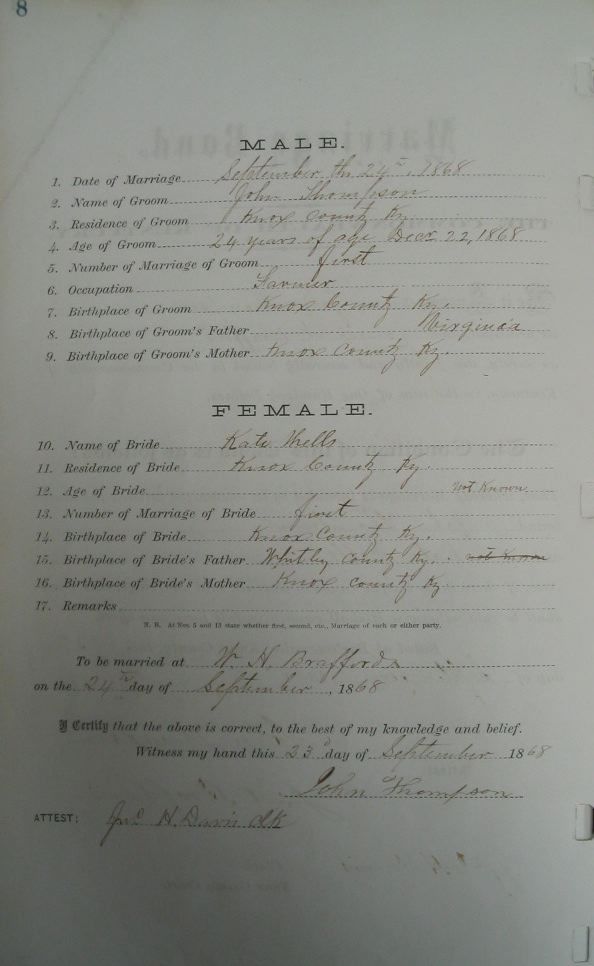 8
MALE.
1. Date of Marriage September the 24th, 1868
2. Name of Groom John Thompson
3. Residence of Groom Knox County Ky
4. Age of Groom 24 years of age Decr 22, 1868
5. Number of Marriage of Groom first
6. Occupation Farmer
7. Birthplace of Groom Knox County Ky.
8. Birthplace of Groom's Father Virginia
9. Birthplace of Groom's Mother Knox County Ky.
FEMALE.
10. Name of Bride Kate
11. Residence of Bride Knox County Ky.
12. Age of Bride not Known
13. Number of Marriage of Bride first
14. Birthplace of Bride Knox County Ky.
15. Birthplace of Bride's Father Whitley County Ky. not known
16. Birthplace of Bride's Mother Knox County Ky
17. Remarks
N. B. At Nos. 5 and 13 state whether first, second, etc., Marriage of each or either party.
To be married at W. H. Braffords
on the 24th day of September, 1868
I Certify that the above is correct, to the best of my knowledge and belief.
Witness my hand this 23d day of September 1868
John Thompson
ATTEST: Jno H. Davis clk